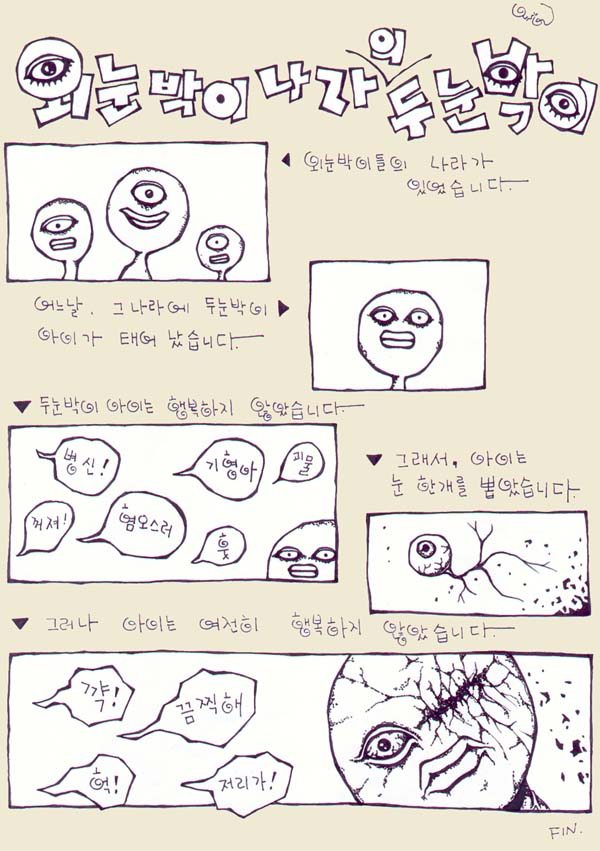 외눈박이 나라의 두눈박이
외눈박이들의 나라가
있었습니다.
어느날, 그 나라에 두눈박이
아이가 태어 났습니다.
두눈박이 아이는 행복하지 않았습니다.
병신!
기형아
괴물
꺼져!
혐오스러
흣
그래서, 아이는
눈 한개를 뽑았습니다.
그러나 아이는 여전히 행복하지 않았습니다.
꺅!
끔찍해
헉!
저리가!
FIN.